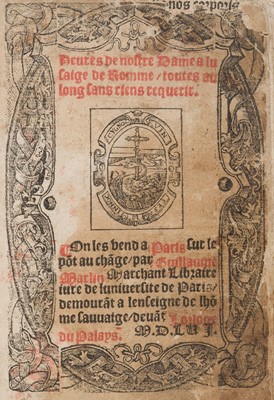 nos corps
Heures de nostre Dame a lu
saige de Romme / toutes au
long sans riens requerir.
On les vend a Paris sur le
põt au chãge / par Guillaume
Merlin Marchant Libraire
iure de luniuersite de Paris /
demourãt a lenseigne de lhõ
me sauuaige / deuãt Lorloge
du Palays. M.D.LVI.